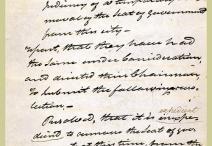 of a temporary
moval of the Seat of Government
from this city—
report, that they have had
the same under Consideration,
and directed their Chairman
to submit the following reso-
lution—
Resolved, that it is
expedient
to remove the Seat of gov-
at this time, from the